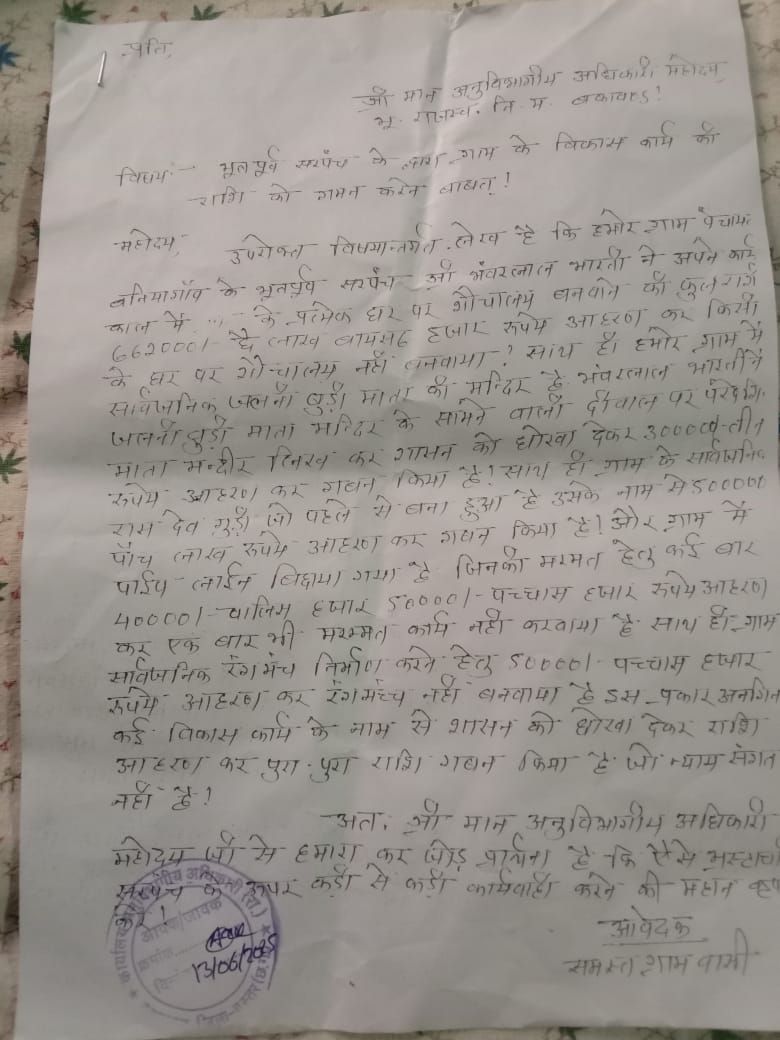 प्रति,
श्री मान अनुविभागीय अधिकारी महोदय,
भू. राजस्व. जि म. बकावण्ड!
विषय:- भूतपूर्व सरपंच के द्वारा ग्राम के विकास कार्य की
राशि को गमन करने बाबत्!
महोदय, उपरोक्त विषयान्तर्गत लेख है कि हमारे ग्राम पंचायत
बनियागाँव के भूतपूर्व सरपंच श्री भंवरलाल भारती ने अपने कार्य
काल में ... के प्रत्येक घर पर शौचालय बनवाने की कुल राशि
662000/- छै लाख बायसठ हजार रूपये आहरण कर किसी
के घर पर शौचालय नहीं बनवाया? साथ ही हमारे ग्राम में
सार्वजनिक जलनी बुड़ी माता की मन्दिर है भंवरलाल भारती ने
जलनी बुड़ी माता मन्दिर के सामने वाली दीवाल पर
माता मन्दीर लिख कर शासन को धोखा देकर 300000/-तीन
रूपये आहरण कर गबन किया है! साथ ही ग्राम के सार्वजनिक
राम देव गुड़ी जो पहले से बना हुआ है उसके नाम से 500000
पाँच लाख रूपये आहरण कर गबन किया है! और ग्राम में
पाईप लाईन बिछाया गया है जिनकी मरम्मत हेतु कई बार
40000/- चालिस हजार 50000/- पच्चास हजार रूपये आहरण
कर एक बार भी मरम्मत कार्य नहीं करवाया है साथ ही ग्राम
सार्वजनिक रंगमंच निर्माण करने हेतु 50000/- पच्चास हजार
रूपये आहरण कर रंगमंच नहीं बनवाया है इस प्रकार अनगिन
कई विकास कार्य के नाम से शासन को धोखा देकर राशि
आहरण कर पुरा-पुरा राशि गबन किया है जो न्याय संगत
नहीं है!
अत: श्री मान अनुविभागीय अधिकारी
महोदय जी से हमारा कर जोड़ प्रार्थना है कि ऐसे भ्रस्टाचारी
सरपंच के ऊपर कड़ी से कड़ी कार्यवाही करने की महान कृपा
करें!
आवेदक
समस्त ग्राम वासी
कार्यालय अनुविभागीय अधिकारी (रा.)
आवक/जावक
क्रमांक
दिनां
13/06/2025
जिला-बस्तर (छ.ग.)